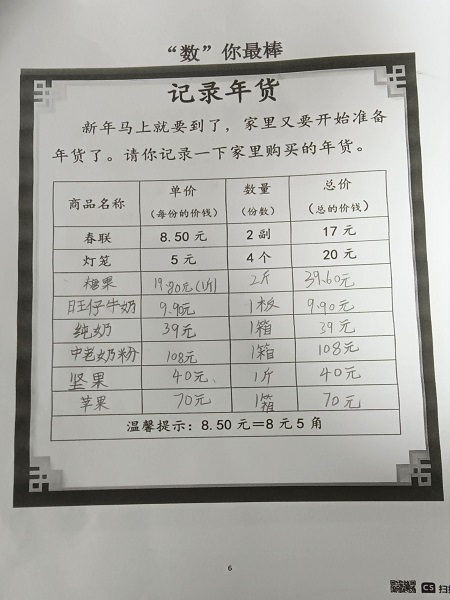 “数”你最棒
记录年货
新年马上就要到了，家里又要开始准备
年货了。请你记录一下家里购买的年货。
商品名称 单价（每份的价钱） 数量（份数） 总价（总的价钱）
春联 8.50 元 2 副 17 元
灯笼 5 元 4 个 20 元
糖果 19.80元(1斤) 2斤 39.60元
旺仔牛奶 9.90元 1板 9.90元
纯奶 39元 1箱 39元
中老奶粉 108元 1箱 108元
坚果 40元 1斤 40元
苹果 70元 1箱 70元
温馨提示：8.50 元＝8 元 5 角
6
CS 扫